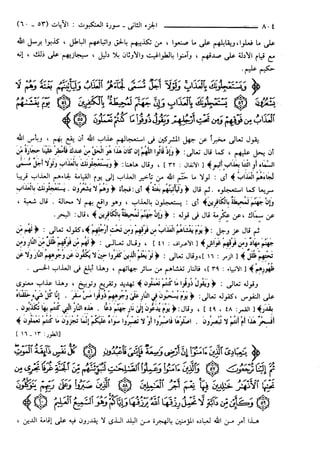 ٨٠٤ ــــــــــــ الجزء الثانى ـ سورة العنكبوت : الآيات (٥٣ ـ ٦٠)
على ما فعلوا، ويقابلهم على ما صنعوا ، من تكذيبهم بالحق واتباعهم الباطل ، كذبوا برسل الله
مع قيام الأدلة على صدقهم ، وآمنوا بالطواغيت والأوثان بلا دليل ، سيجازيهم على ذلك ، إنه
حكيم عليم .
﴿ وَيَسْتَعْجِلُونَكَ بِالْعَذَابِ وَلَوْلَا أَجَلٌ مُّسَمًّى لَّجَاءَهُمُ الْعَذَابُ وَلَيَأْتِيَنَّهُم بَغْتَةً وَهُمْ لَا
يَشْعُرُونَ ﴿٥٣﴾ يَسْتَعْجِلُونَكَ بِالْعَذَابِ وَإِنَّ جَهَنَّمَ لَمُحِيطَةٌ بِالْكَافِرِينَ ﴿٥٤﴾ يَوْمَ يَغْشَاهُمُ
الْعَذَابُ مِن فَوْقِهِمْ وَمِن تَحْتِ أَرْجُلِهِمْ وَيَقُولُ ذُوقُوا مَا كُنتُمْ تَعْمَلُونَ ﴿٥٥﴾
يقول تعالى مخبراً عن جهل المشركين فى استعجالهم عذاب الله أن يقع بهم ، وبأس الله
أن يحل عليهم ، كما قال تعالى : ﴿ وَإِذْ قَالُوا اللَّهُمَّ إِن كَانَ هَذَا هُوَ الْحَقَّ مِنْ عِندِكَ فَأَمْطِرْ عَلَيْنَا حِجَارَةً مِّنَ
السَّمَاءِ أَوِ ائْتِنَا بِعَذَابٍ أَلِيمٍ ﴾ [ الأنفال : ٣٢ ] ، وقال هاهنا : ﴿ وَيَسْتَعْجِلُونَكَ بِالْعَذَابِ وَلَوْلَا أَجَلٌ مُّسَمًّى
لَّجَاءَهُمُ الْعَذَابُ ﴾ أى : لولا ما حتّم الله من تأخير العذاب إلى يوم القيامة لجاءهم العذاب قريبا
سريعا كما استعجلوه . ثم قال ﴿ وَلَيَأْتِيَنَّهُم بَغْتَةً ﴾ أى : فجأة ﴿ وَهُمْ لَا يَشْعُرُونَ . يَسْتَعْجِلُونَكَ بِالْعَذَابِ
وَإِنَّ جَهَنَّمَ لَمُحِيطَةٌ بِالْكَافِرِينَ ﴾ أى : يستعجلون بالعذاب ، وهو واقع بهم لا محالة . قال شعبة ،
عن سماك ، عن عكرمة قال فى قوله : ﴿ وَإِنَّ جَهَنَّمَ لَمُحِيطَةٌ بِالْكَافِرِينَ ﴾، قال: البحر.
ثم قال عز وجل : ﴿ يَوْمَ يَغْشَاهُمُ الْعَذَابُ مِن فَوْقِهِمْ وَمِن تَحْتِ أَرْجُلِهِمْ ﴾ ،كقوله تعالى : ﴿ لَهُم مِّن
جَهَنَّمَ مِهَادٌ وَمِن فَوْقِهِمْ غَوَاشٍ ﴾ [ الأعراف : ٤١ ] ، وقال تعالى : ﴿ لَهُم مِّن فَوْقِهِمْ ظُلَلٌ مِّنَ النَّارِ وَمِن
تَحْتِهِمْ ظُلَلٌ ﴾ [ الزمر : ١٦ ] ،وقال تعالى : ﴿ لَوْ يَعْلَمُ الَّذِينَ كَفَرُوا حِينَ لَا يَكُفُّونَ عَن وُجُوهِهِمُ النَّارَ وَلَا عَن
ظُهُورِهِمْ ﴾ [ الأنبياء : ٣٩ ] ، فالنار تغشاهم من سائر جهاتهم ، وهذا أبلغ فى العذاب الحسى .
وقوله تعالى : ﴿ وَيَقُولُ ذُوقُوا مَا كُنتُمْ تَعْمَلُونَ ﴾ تهديد وتقريع وتوبيخ ، وهذا عذاب معنوى
على النفوس ،كقوله تعالى : ﴿ يَوْمَ يُسْحَبُونَ فِي النَّارِ عَلَى وُجُوهِهِمْ ذُوقُوا مَسَّ سَقَرَ . إِنَّا كُلَّ شَيْءٍ خَلَقْنَاهُ
بِقَدَرٍ ﴾ [ القمر : ٤٨ ، ٤٩ ] ، وقال: ﴿ يَوْمَ يُدَعُّونَ إِلَى نَارِ جَهَنَّمَ دَعًّا . هَذِهِ النَّارُ الَّتِي كُنتُم بِهَا تُكَذِّبُونَ .
أَفَسِحْرٌ هَذَا أَمْ أَنتُمْ لَا تُبْصِرُونَ . اصْلَوْهَا فَاصْبِرُوا أَوْ لَا تَصْبِرُوا سَوَاءٌ عَلَيْكُمْ إِنَّمَا تُجْزَوْنَ مَا كُنتُمْ تَعْمَلُونَ ﴾
[الطور: ١٣ ـ ١٦]
﴿ يَا عِبَادِيَ الَّذِينَ آمَنُوا إِنَّ أَرْضِي وَاسِعَةٌ فَإِيَّايَ فَاعْبُدُونِ ﴿٥٦﴾ كُلُّ نَفْسٍ ذَائِقَةُ الْمَوْتِ
ثُمَّ إِلَيْنَا تُرْجَعُونَ ﴿٥٧﴾ وَالَّذِينَ آمَنُوا وَعَمِلُوا الصَّالِحَاتِ لَنُبَوِّئَنَّهُم مِّنَ الْجَنَّةِ غُرَفًا تَجْرِي مِن
تَحْتِهَا الْأَنْهَارُ خَالِدِينَ فِيهَا نِعْمَ أَجْرُ الْعَامِلِينَ ﴿٥٨﴾ الَّذِينَ صَبَرُوا وَعَلَى رَبِّهِمْ يَتَوَكَّلُونَ
﴿٥٩﴾ وَكَأَيِّن مِّن دَابَّةٍ لَّا تَحْمِلُ رِزْقَهَا اللَّهُ يَرْزُقُهَا وَإِيَّاكُمْ وَهُوَ السَّمِيعُ الْعَلِيمُ ﴿٦٠﴾
هذا أمر من الله لعباده المؤمنين بالهجرة من البلد الذى لا يقدرون فيه على إقامة الدين ،